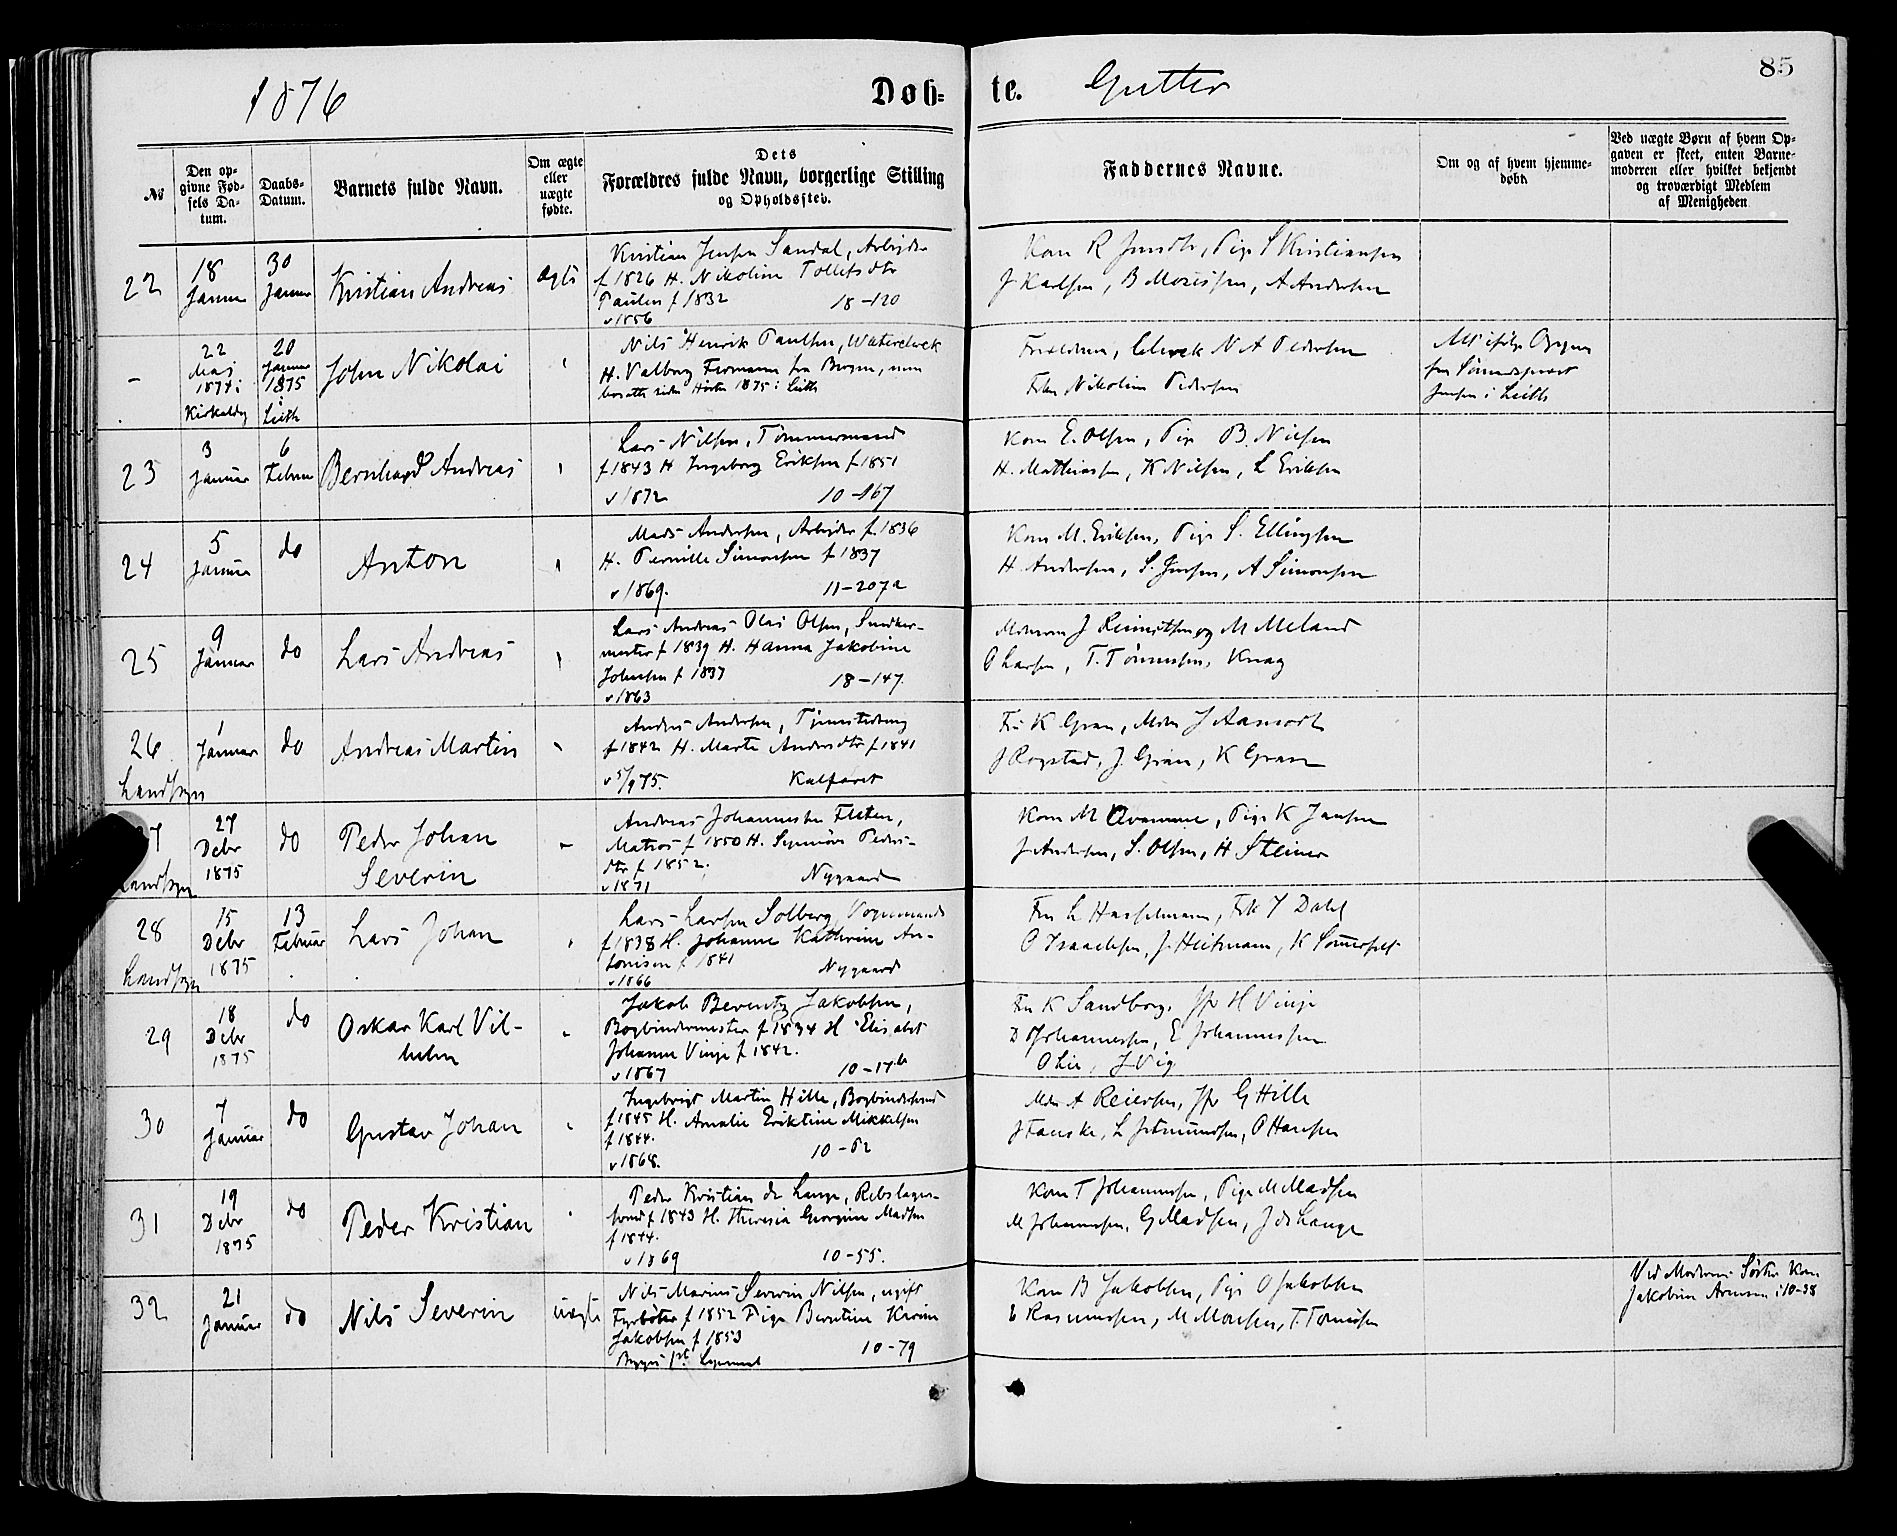 1876 Døb= te. Gutter 85
No
Den op-
givne Fød-
sels Da-
tum.
Daabs-
Datum.
Barnets fulde Navn.
Om ægte
eller
uægte
fødte.
Dets
Forældres fulde Navn, borgerlige Stilling
og Opholdssted.
Faddernes Navne.
Om og af hvem hjemme-
døbt
Ved uægte Børn af hvem Op-
gaven er skeet, enten Barne-
moderen eller hvilket bekjendt
og troværdigt Medlem
af Menigheden
22
18
Januar
30
Januar
Kristian Andreas
Ægte
Kristian Jensen Sandal, Arbejder
f 1826 H. Nikoline Tollefsdtr
Paulsen f 1832 18-120
v 1856
Kone R Jensdtr, Pige S Kristiansen
J Karlsen, B Monssen, A Andersen
-
22
Maj
1874 i
Kirkaldy
20
Januar
1875
i
Leith
John Nikolai
Nils Henrik Paulsen, Waterclerk
H. Valborg Formann fra Bergen, nu
bosatte siden Høsten 1875 i Leith
Forældrene, Clerk N A Pedersen
Frk Nikoline Pedersen
Alt ifølge Opgave
fra Sømandspræst
Jensen i Leith
23
3
Januar
6
Februar
Bernhard Andreas
Lars Nilsen, Tømmermand
f 1843 H Ingeborg Eriksen f 1851
v 1872 10-167
Kone E. Olsen, Pige B. Nilsen
H. Mathiassen, K Nilsen, L Eriksen
24
5
Januar
do
Anton
Mads Andersen, Arbejder f. 1836
H. Pernille Simonsen f 1837
v 1869. 11-207a
Kone M. Eriksen, Pige S. Ellingsen
H Andersen, S. Jensen, A Simonsen
25
9
Januar
do
Lars Andreas
Lars Andreas Olai Olsen, Snedker-
mester f 1839 H. Hanna Jakobine
Johnsen f 1837 18-147.
v 1863
M Meland
O Larsen, T. Tønnessen, Knag
26.
Landsogn
1
Januar
do
Andreas Martin
Anders Andersen, Tjenestedreng
f 1842 H. Marte Andersdtr f 1841
v 5/9 75. Kalfaret
Fru K Gran, Mdm J Aamodt
J Rogstad, J. Gran, K Gran
27
Landsogn
27
Debr
1875
do
Peder Johan
Severin
Andreas Johannessen Flaten,
Matros f 1850 H. Synnøve Peders-
dtr f 1852.
v 1871 Nygaard
Kone M Qvamme, Pige K Jansen
J Andersen, S. Olsen, H Steiner
28
Landsogn
15
Debr
1875
13
Februar
Lars Johan
Lars Larsen Solberg, Vognmand
f 1838 H. Johanne Kathrine An-
tonisen f 1841 Nygaard
v 1866
Fru L Hasselmann, Frk J Dahl
O Isaachsen, J. Heitmann, K Sommerfelt
29
18
Debr
1875
do
Oskar Karl Vil-
helm
Jakob Berentz Jakobsen,
Bogbindermester f 1834 H Elisabet
Johanne Vinje f 1842.
v 1867 10-17b
Fru K Sandborg, Jfr H Vinje
D Johannessen, E Johannessen
O Lie, J Vig
30
7
Januar
do
Gustav Johan
Ingebrigt Martin Hille, Bogbindersvend
f 1845 H. Amalie Eriktine Mikkelsen
f 1844.
v 1868. 10-62
Mdm A Reiersen, Jfr G Hille
J Fauske, L Johannessen, O Hansen
31
19
Debr
1875
do
Peder Kristian
Peder Kristian de Lange, Rebslager-
svend f 1843 H. Theresia Georgine Madsen
f 1844.
v 1869 10-55.
Kone T Johannessen, Pige M Madsen
M Johannessen, G Madsen, J de Lange
32
21
Januar
do
Nils Severin
uægte
Nils Marius Severin Nilsen, ugift
Fyrbøter f 1852 Pige Berntine Karine
Jakobsen f 1853
Begges 1st Lejermaal 10-79
Kone B Jakobsen, Pige O Jakobsen
E Rasmussen, M Monsen, T. Tomsøen
Ved Moderens Søster Kone
Jakobine Arnesen i 10-38